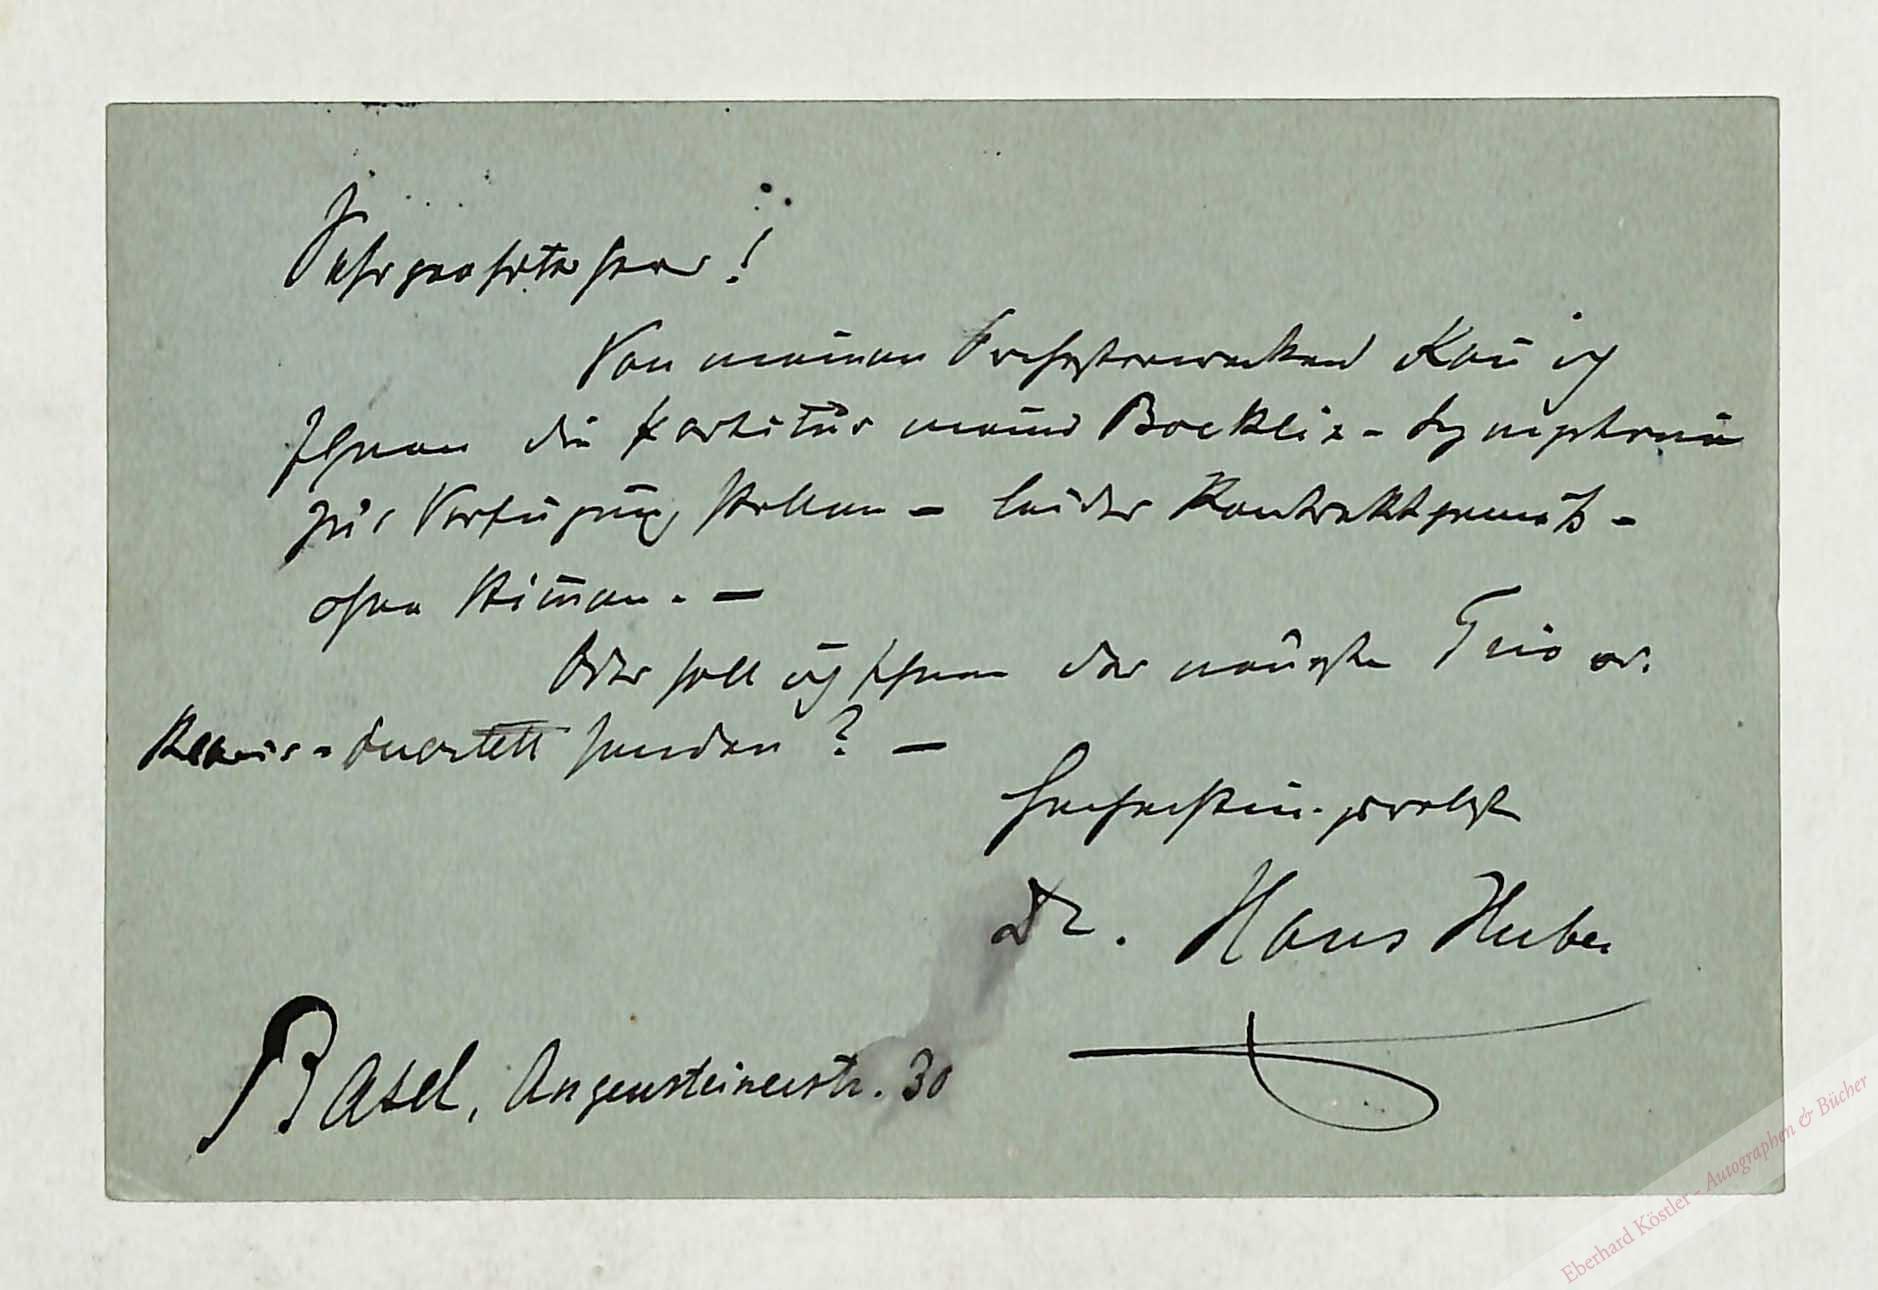 Sehr geehrter Herr!
Von meinen Orchesterwerken kan̄ ich
Ihnen die Partitur meiner Boecklin-Symphonie
zur Verfügung stellen – leider Kontraktgemäß –
ohne Stim̄en. –
Oder soll ich Ihnen das neueste Trio od.
Klavier-Quartett senden? –
Hochachtun. ergebenst
Dr. Hans Huber
Basel, Angensteinerstr. 30
Eberhard Köstler - Autographen & Bücher